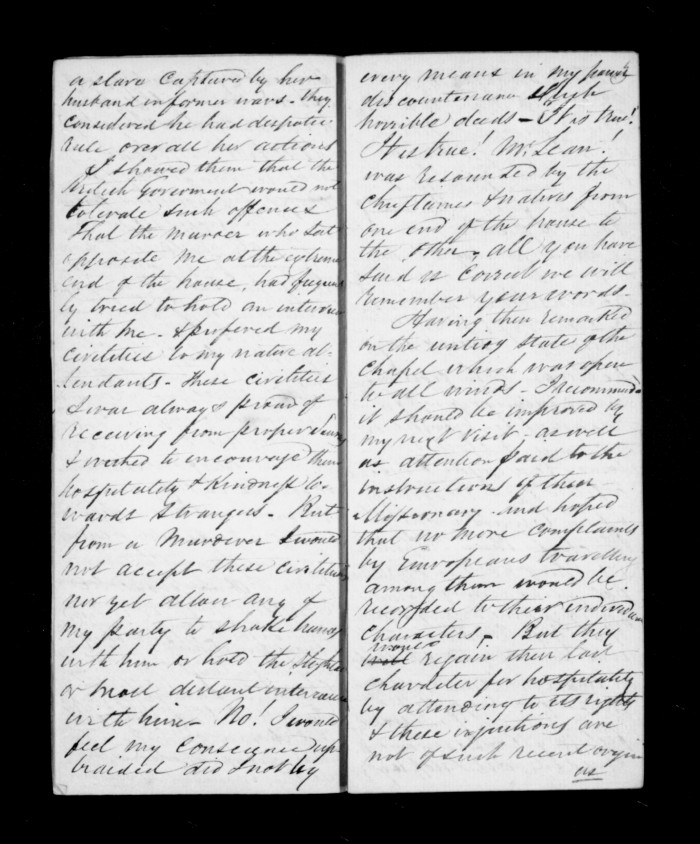 a slave captured by her
husband in former wars - they
considered he had despotic
rule over all her actions
I showed them that the
British Goverment would not
tolerate such offences
That the murderer who sat
opposite me at the extreme
end of the house, had frequent
ly tried to hold an interview
with me - & prefered my
civilities to my native at-
tendants - These civilities
I was always proud of
receiving from proper
& wished to encourage them
hospitality & kindness to-
wards strangers - But
from a Murderer I would
not accept these civilities
nor yet allow any of
my party to shake hands
with him or hold the
or most distant intercourse
with him - No! I would
feel my conscience up
braided did I not by
every means in my power
discountenance Such
horrible deeds - It is true!
It is true! Mr. Lean!
was resounded by the
Chieftames & natives from
one end of the house to
the other, all you have
said is correct we will
remember your words -
Having then remarked
on the untidy state of the
Chapel which was open
to all winds - I recommended
it should be improved by
my next visit - as well
as attention paid to the
instructions of their
Missionary - and hoped
that no more complaints
by Europeans travelling
among them would be
recorded to their individual
characters - But they
would
will regain their lost
character for hospitality
by attending to its rights
& these injuctions are
not of such recent origin
as